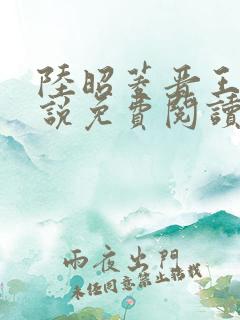 陸昭蓁晋王
說免費閱讀
雨夜出門
未經同意禁止轉載